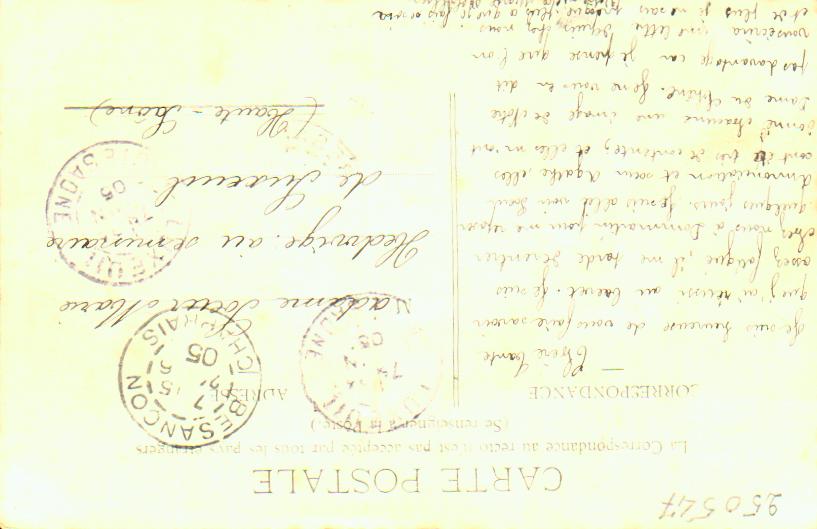 CARTE POSTALE
La Correspondance au recto n'est pas acceptée par tous les pays étrangers
(Se renseigner à la Poste.)
CORRESPONDANCE
ADRESSE
Chère tante
Je suis heureuse de vous faire savoir
que j'ai réussi au brevet. Je suis
assez fatiguée, il me tarde de rentrer
chez nous à Dommartin pour me reposer
quelques jours. Je suis allée voir Soeur
Annonciation et soeur Agathe, elles
ont été très contentes; et elles m'ont
donné chacune une image de Notre
Dame du Chêne. Je ne vous en dit
pas davantage car je pense que l'on
vous écrira une lettre depuis chez nous
et de plus je ne sais presque plus ce que je fais
Madame Soeur Marie
Hedwige au séminaire
de Luxeuil
(Haute-Saône)
BESANÇON
CHAPRAIS
05
LUXEUIL
HTE SAÔNE
05
LUXEUIL
SAÔNE
05
250547